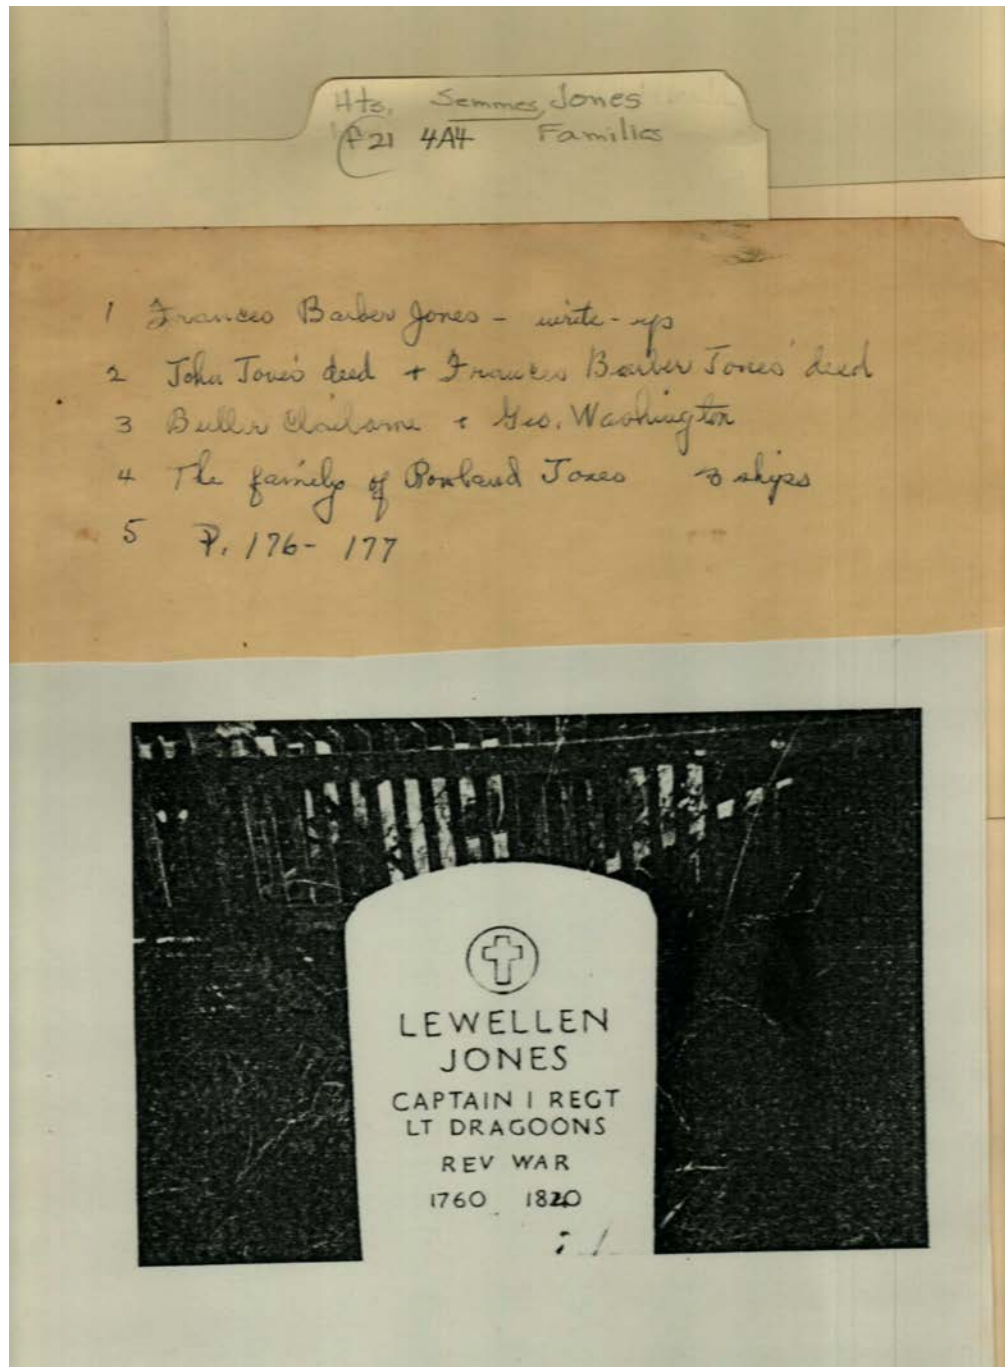 Hts. Semmes, Jones
F21 4A4 Families
1 Frances Barber Jones - write-up
2 John Jones' deed + Frances Barber Jones' deed
3 Butler Claiborne + Geo. Washington
4 The family of Rowland Jones 3 ships
5 P. 176- 177
LEWELLEN
JONES
CAPTAIN 1 REGT
LT DRAGOONS
REV WAR
1760 1820